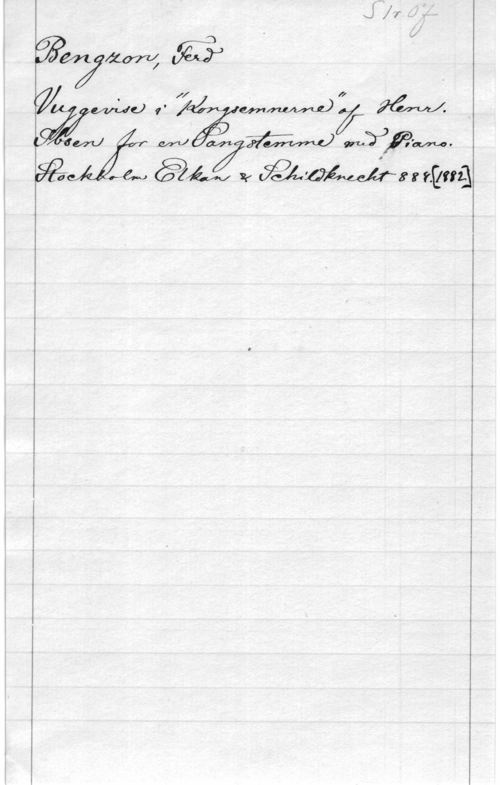 Bengzon, Ferd
Vuggevise i "Kongsemnerne" af Henr.
Ibsen for en Sangstemme med Piano.
Stockholm Elkan & Schildknecht 888. [1882]